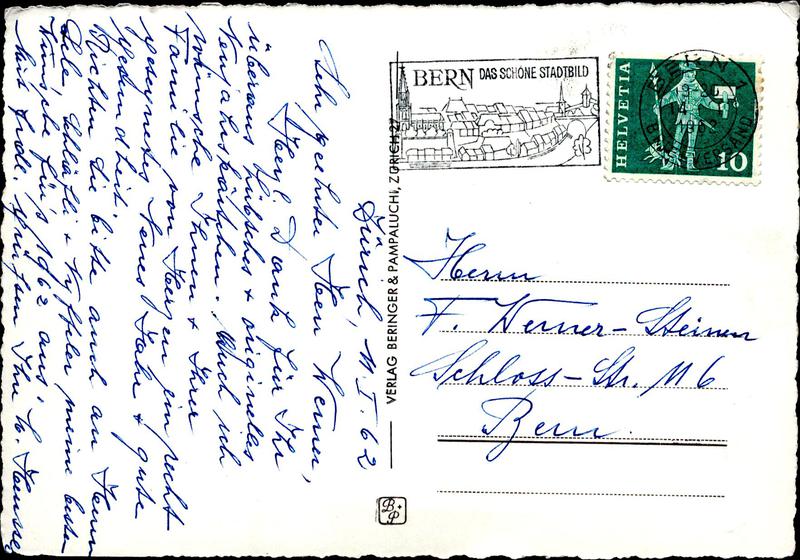 Zürich, 11.I.62
Sehr geehrter Herr Werner,
Herzl. Dank für Ihr
überaus hübsches & originelles
Neujahrskärtchen. Auch ich
wünsche Ihnen & Ihrer
Familie von Herzen ein recht
gesegnetes Neues Jahr & gute
Gesundheit.
Richten Sie bitte auch an Herrn
Sele, Schläfli & Nyffeler meine besten
Wünsche für's 1962 aus.
Mit fredl. Grüssen Ihr
VERLAG BERINGER & PAMPALUCHI, ZÜRICH 27
B+P
BERN DAS SCHÖNE STADTBILD
HELVETIA
10
BERN 1
BRIEFVERSAND
Herrn
F. Werner-Steinen
Schloss-Str. 116
Bern.